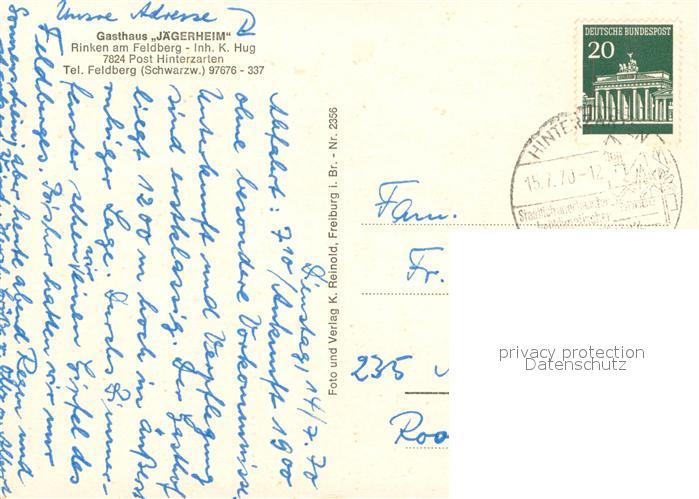 Unsre Adresse
Gasthaus „JÄGERHEIM"
Rinken am Feldberg - Inh. K. Hug
7824 Post Hinterzarten
Tel. Feldberg (Schwarzw.) 97676 - 337
Dienstag, 14/7.70
Abfahrt: 7 10 / Ankunft 19 00
ohne besondere Vorkommnisse.
Unterkunft und Verpflegung
sind erstklassig. Der Gasthof
liegt 1200 m hoch in äußerst
ruhiger Lage. Durchs Zimmer-
fenster sehen wir einen Gipfel des
Feldberges. Bisher hatten wir nur
Sonnenschein, aber heute abend Regen und
Foto und Verlag K. Reinold, Freiburg i. Br. - Nr. 2356
DEUTSCHE BUNDESPOST
20
HINTERZARTEN
15.7.70-12
Fam.
Fr.
235
Roo
privacy protection
Datenschutz